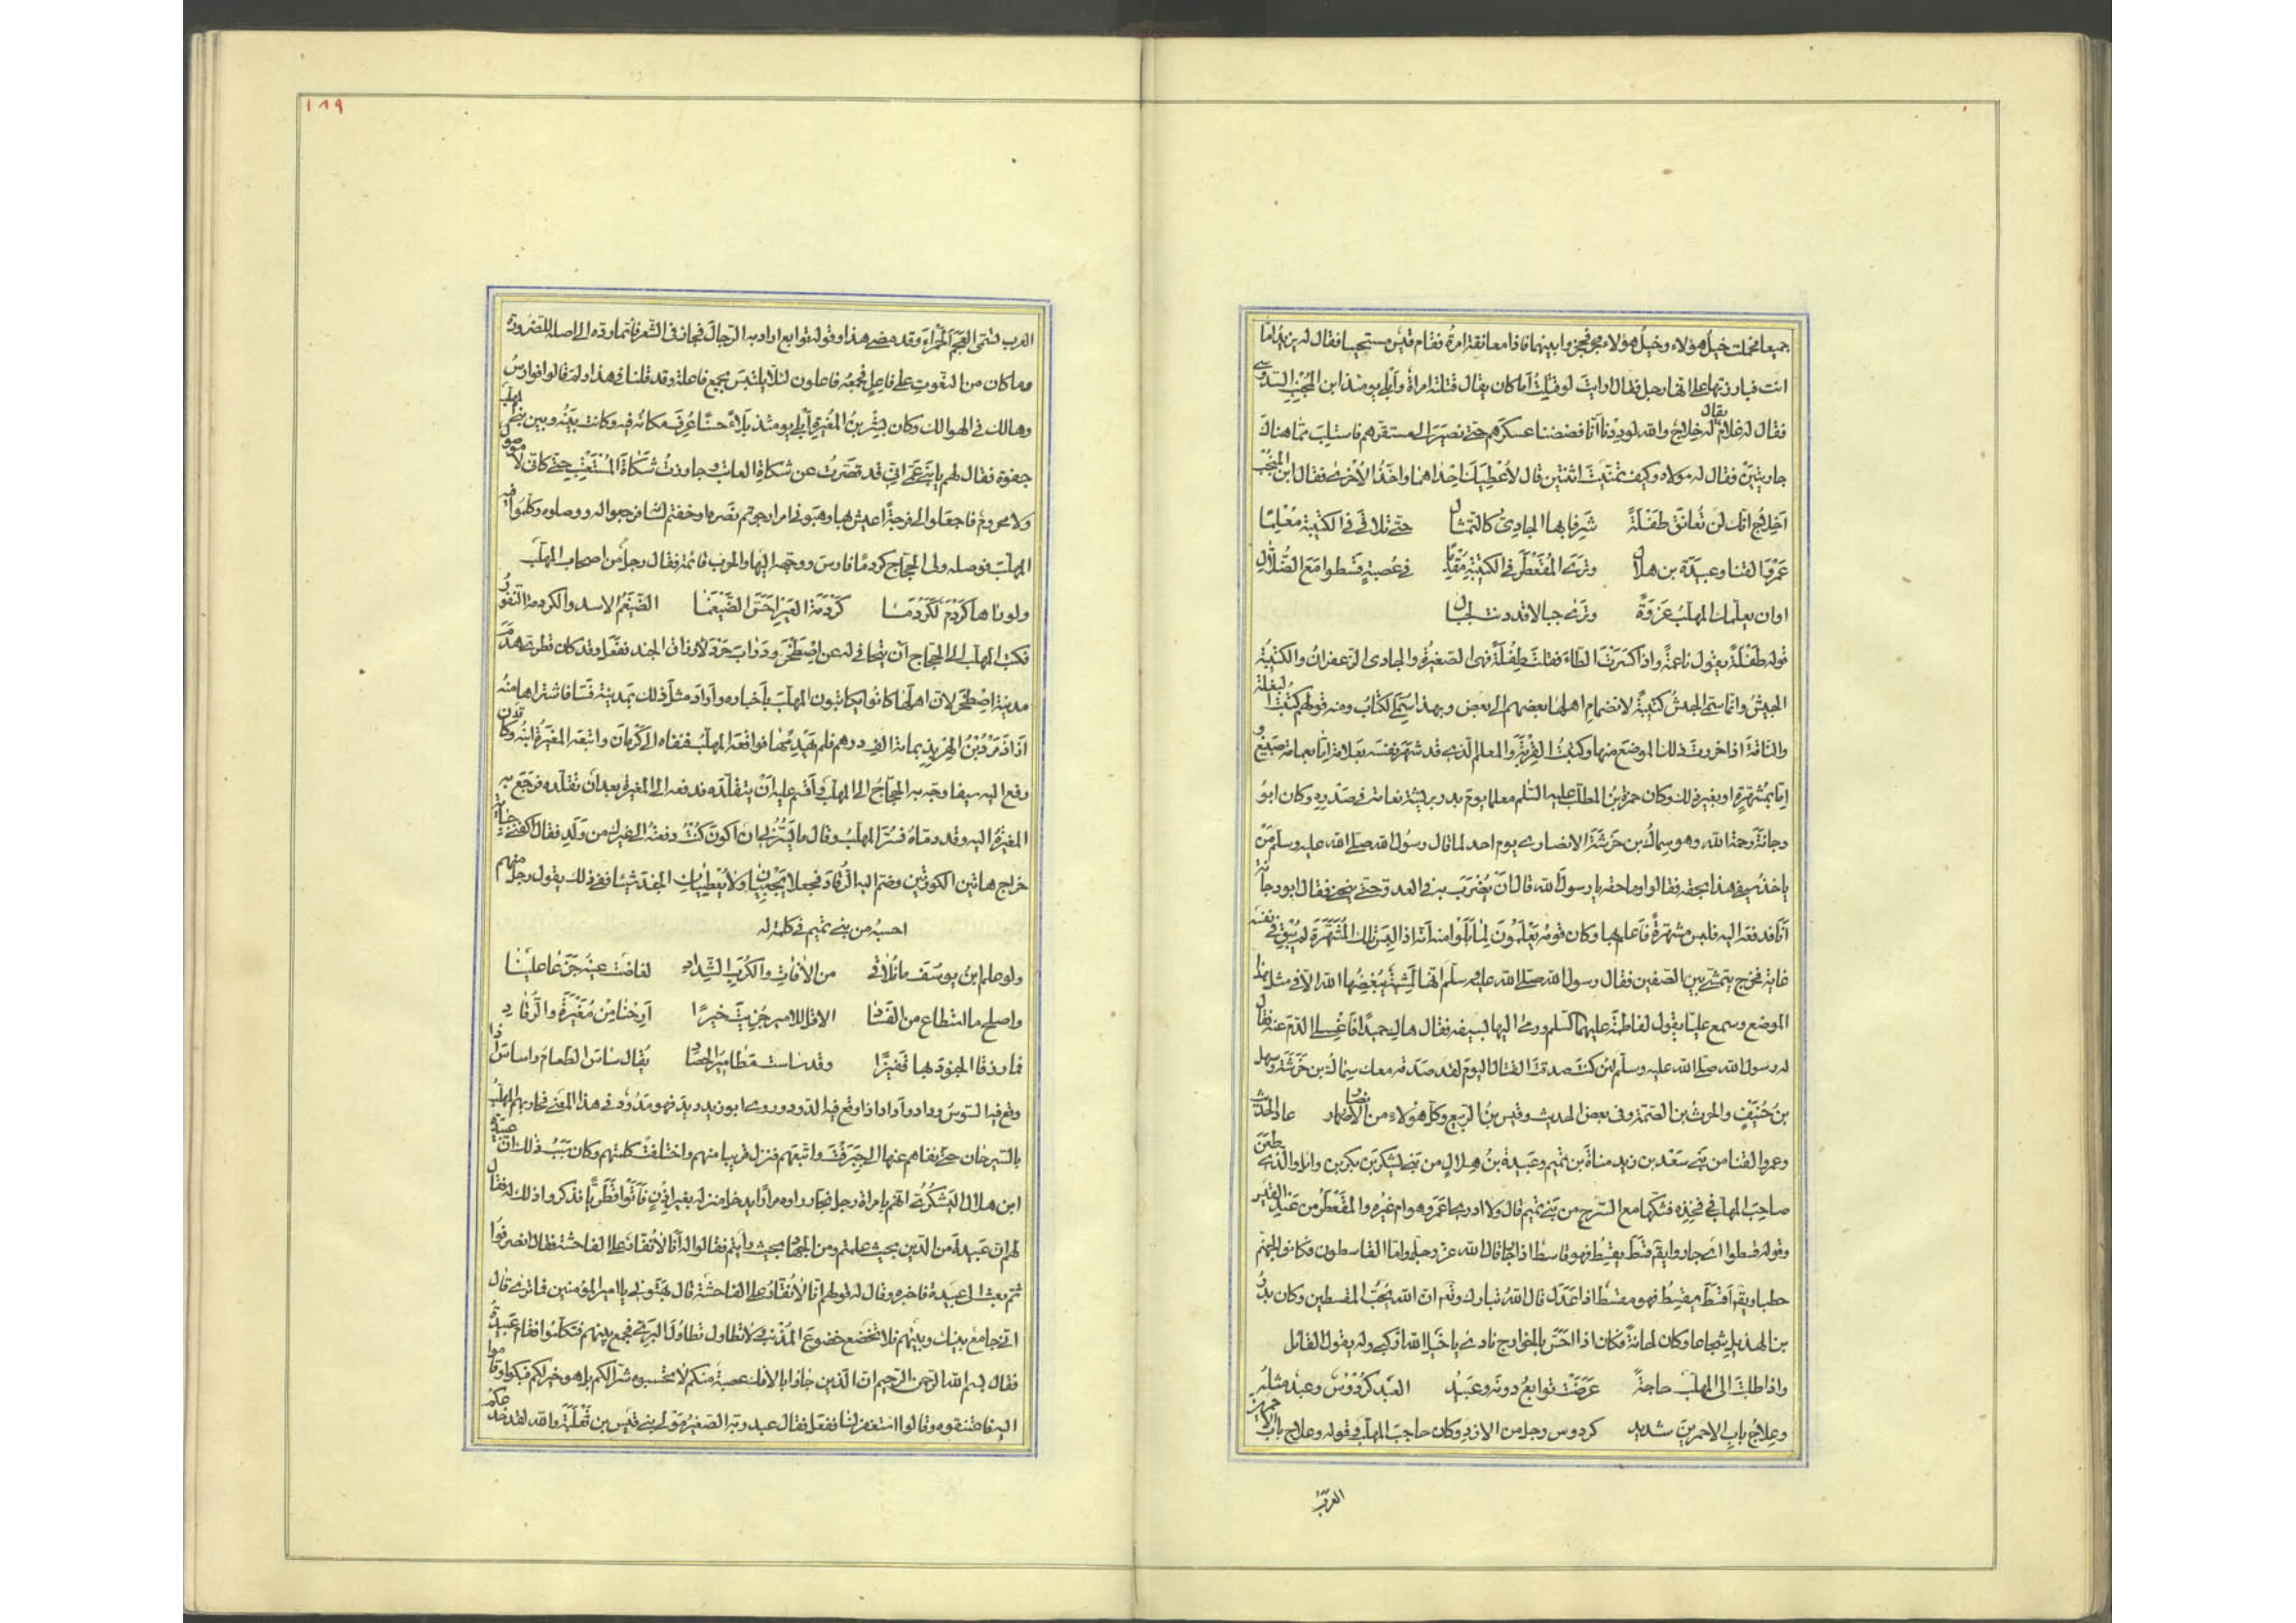 جميعا فحملت خيل هؤلاء وخيل هؤلاء فحجزوا بينهما فاذا معانقة امرأة فقام قيس مستحييا فقال له يزيد اما
انت فبارزتها على انها رجل فقال ارايت لو قتلت أما كان يقال قتلته امرأة وأبلى يومئذ ابن المنجب السدوسى
فقال له غلام يقال له خلاج والله لوددنا أنا فضضنا عسكرهم حتى نصير الى مستقرهم فاستلب مما هناك
جاريتين فقال له مولاه وكيف تمنيت اثنتين قال لأعطيك احداهما وآخذ الأخرى فقال ابن المنجب
أخلاج انك لن تعانق طفلة شرقا بها الجادى كالتمثال حتى تلاقى فى الكتيبة معلما
عمرو القنا وعبيدة بن هلال وترى المقعطر فى الكتيبة مقبلا فى عصبة قسطوا مع الضلال
او ان يعلمك المهلب غزوة وترى جبالا قد دنت لجبال
قوله طفلة يقول ناعمة واذا كسرت الطاء فقلت طفلة فهى الصغيرة والجادى الزعفران والكتيبة
الجيش وانما سمى الجيش كتيبة لانضمام اهلها بعضهم الى بعض وبهذا سمى الكتاب ومنه قولهم كتبت البغلة
والناقة اذا خرزت ذلك الموضع منها وكتبت القربة والمعلم الذى قد شهر نفسه بعلامة إما بعمامة صبيغ و
إما بمشهرة او بغير ذلك وكان حمزة بن المطلب عليه السلم معلما يوم بدر بريشة نعامة فى صدره وكان ابو
دجانة رحمة الله وهو سماك بن خرشة الانصارى يوم احد لما قال رسول الله صلى الله عليه وسلم من
ياخذ سيفى هذا بحقه فقالوا وما حقه يا رسول الله قال ان يضرب به فى العدو حتى ينحنى فقال ابو دجانة
أنا فدفعه اليه فلبس مشهرة فاعلم بها وكان قومه يعلمون لما بلوا منه أنه اذا لبس تلك المشهرة لم يبق فى نفسه
غاية فخرج يتمشى بين الصفين فقال رسول الله صلى الله عليه وسلم انها لمشية يبغضها الله الا فى مثل هذا
الموضع وسمع عليا يقول لفاطمة عليهما السلم ورمى اليها بسيفه فقال هاك حميدا فاغسلى الدم عنه فقال
له رسول الله صلى الله عليه وسلم لئن كنت صدقت القتال اليوم لقد صدقه معك سماك بن خرشة وسهل
بن حنيف والحرث بن الصمة وفى بعض الحديث وقيس بن الربيع وكل هؤلاء من الأنصار عاد الحديث
وعمرو القنا من بنى سعد بن زيد مناة بن تميم وعبيدة بن هلال من بنى يشكر بن بكر بن وائل والذى طعن
صاحب المهلب فى فخذه فشكها مع السرج من بنى تميم قال ولا ادرى أعمرو هو ام غيره والمقعطر من عبد القيس
وقوله قسطوا اى جاروا يقم قسط يقسط فهو قاسط اذا جار قال الله عز وجل واما القاسطون فكانوا لجهنم
حطبا ويقم أقسط يقسط فهو مقسط اذا عدل قال الله تبارك وتعم ان الله يحب المقسطين وكان بدر
بن الهذيل شجاعا وكان لحانة فكان اذا احس بالخوارج نادى يا خيل الله اركبى وله يقول القائل
واذا طلبت الى المهلب حاجة عرضت توابع دونه وعبيد العبد كردوس وعبد مثله
وعلاج باب الاحمرين شديد كردوس رجل من الازد وكان حاجب المهلب وقوله وعلاج باب الاحمرين
العرب
١٨٩
العرب تسمى العجم الحمراء وقد مضى هذا وقوله توابع اراد به الرجال فجاز فى الشعر فإنما رده الى اصله للضرورة
وما كان من النعوت على فاعل فجمعه فاعلون لئلا يلتبس بجمع فاعلة وقد قلنا فى هذا ولم قالوا فوارس
وهالك فى الهوالك وكان بشر بن المغيرة أبلى يومئذ بلاء حسنا عرف مكانه فيه وكانت بينه وبين بنى المهلب
جفوة فقال لهم يا بنى عمى إنى قد قصرت عن شكاة العاتب وجاوزت شكاة المستعتب حتى كانى لا موصول
ولا محروم فاجعلوا لى فرجة اعيش بها وهبونى امرا رجوتم نصره او خفتم لسانه فرجعوا له ووصلوه وكلموا فيه
المهلب فوصله وولى الحجاج كردما فارس ووجهه اليها والحرب قائمة فقال رجل من اصحاب المهلب
ولو رآها كردم لكردما كردمة العير احس الضيغما الضيغم الاسد والكردمة النفور
فكتب المهلب الى الحجاج ان يتجافى له عن اصطخر ودرابجرد لأرزاق الجند ففعل وقد كان قطرى هدم
مدينة اصطخر لان اهلها كانوا يكاتبون المهلب بأخباره وأراد مثل ذلك بمدينة فسا فاشتراها منه
آزاذمرد بن الهربذ بمائة الف درهم فلم يهدمها فواقعه المهلب فنفاه الى كرمان واتبعه المغيرة ابنه وقد كان
دفع اليه سيفا وجه به الحجاج الى المهلب وأقسم عليه أن يتقلده فدفعه الى المغيرة بعد ان تقلده فرجع به
المغيرة اليه وقد دماه فسر المهلب وقال ما يسرنى ان اكون كنت دفعته الى غيرك من ولدى فقال اكفنى جباية
خراج هاتين الكورتين وضم اليه الرقاد فجعلا يجبيان ولا يعطيان الجند شيئا ففى ذلك يقول رجل منهم
احسبه من بنى تميم فى كلمة له
ولو علم ابن يوسف ما نلاقى من الآفات والكرب الشداد لفاضت عينه جزعا علينا
واصلح ما استطاع من الفساد الا قل للامير جزيت خيرا أرحنا من مغيرة والرقاد
فما رزقا الجنود بها قفيزا وقد ساست مطامير الحصاد يقال ساس الطعام واساس اذا
وقع فيه السوس وداد وأداد اذا وقع فيه الدود وروى ابو زيد ديد فهو مدود فى هذا المعنى فحاربهم المهلب
بالسيرجان حتى نفاهم عنها الى جيرفت واتبعهم فنزل قريبا منهم واختلفت كلمتهم وكان سبب ذلك ان عبيدة
ابن هلال اليشكرى اتهم بامرأة رجل نجار رأوه مرارا يدخل منزله بغير اذن فأتوا قطريا فذكروا ذلك له فقال
لهم ان عبيدة من الدين بحيث علمتم ومن الجهاد بحيث رأيتم فقالوا له أنا لا نقار على الفاحشة فقال انصرفوا
ثم بعث الى عبيدة فاخبره وقال له قولهم انا لا نقار على الفاحشة قال بهتونى يا امير المؤمنين فما ترى قال
انى جامع بينك وبينهم فلا تخضع خضوع المذنب ولا تطاول تطاول البرى فجمع بينهم فتكلموا فقام عبيدة
فقال بسم الله الرحمن الرحيم ان الذين جاؤا بالافك عصبة منكم لا تحسبوه شرا لكم بل هو خير لكم فبكوا وقاموا
اليه فاعتنقوه وقالوا استغفر لنا ففعل فقال عبد ربه الصغير مولى بنى قيس بن ثعلبة والله لقد خدعكم